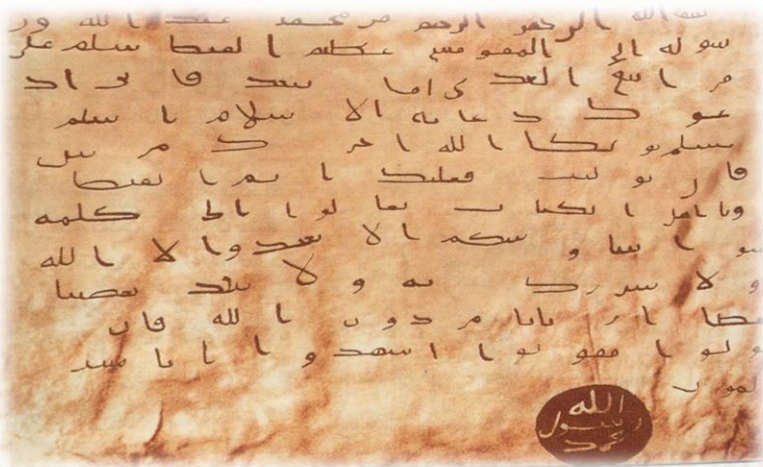 بسم الله الرحمن الرحيم من محمد عبد الله ور
سوله إلى المقوقس عظيم القبط سلم على
من اتبع الهدى اما بعد فانى اد
عوك بدعاية الاسلام اسلم
تسلم يوتك الله اجرك مرتين
فان توليت فعليك اثم القبط
ويا اهل الكتاب تعالوا الى كلمه
سوا بيننا وبينكم الا نعبدوا الا الله
ولا نشرك به ولا يتخذ بعضنا
بعضا اربابا من دون الله فان
تولوا فقولوا اشهدوا بانا مس
لمون
الله
رسول
محمد